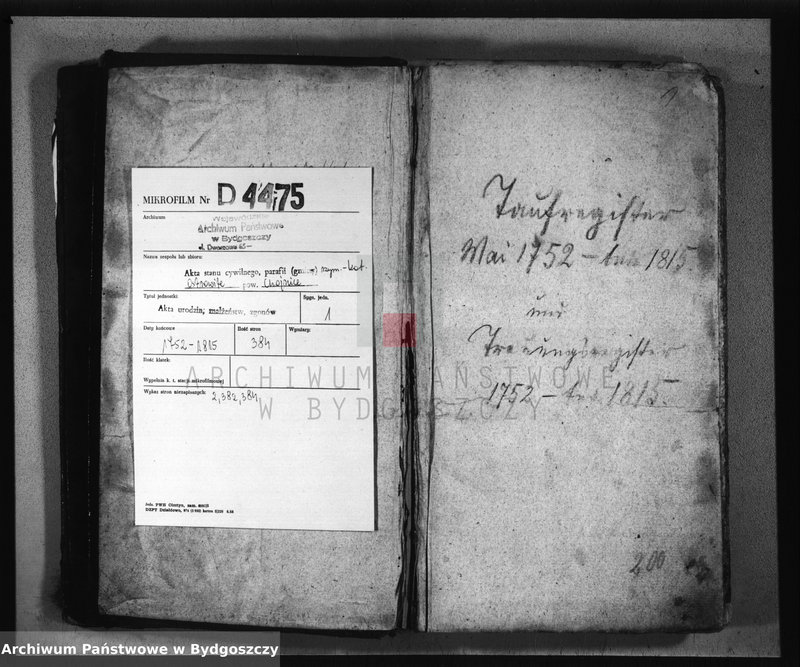 MIKROFILM Nr D 4475
Archiwum
Wojewódzkie
Archiwum Państwowe
w Bydgoszczy
ul. Dworcowa 65
Nazwa zespołu lub zbioru:
Akta stanu cywilnego, parafii (gminy) rzym.-kat.
Ostrowite pow. Chojnice
Tytuł jednostki
Akta urodzin, małżeństw, zgonów
Sygn. jedn.
1
Daty końcowe
1752-1815
Ilość stron
384
Wymiary:
Ilość klatek:
Wypełnia k. t. stacji mikrofilmowej
Wykaz stron niezapisanych: 2, 382, 384,
Taufregister
Mai 1752 - 1815
und
Trauungsregister
1752 - 1815
200
ARCHIWUM PAŃSTWOWE
W BYDGOSZCZY
Archiwum Państwowe w Bydgoszczy